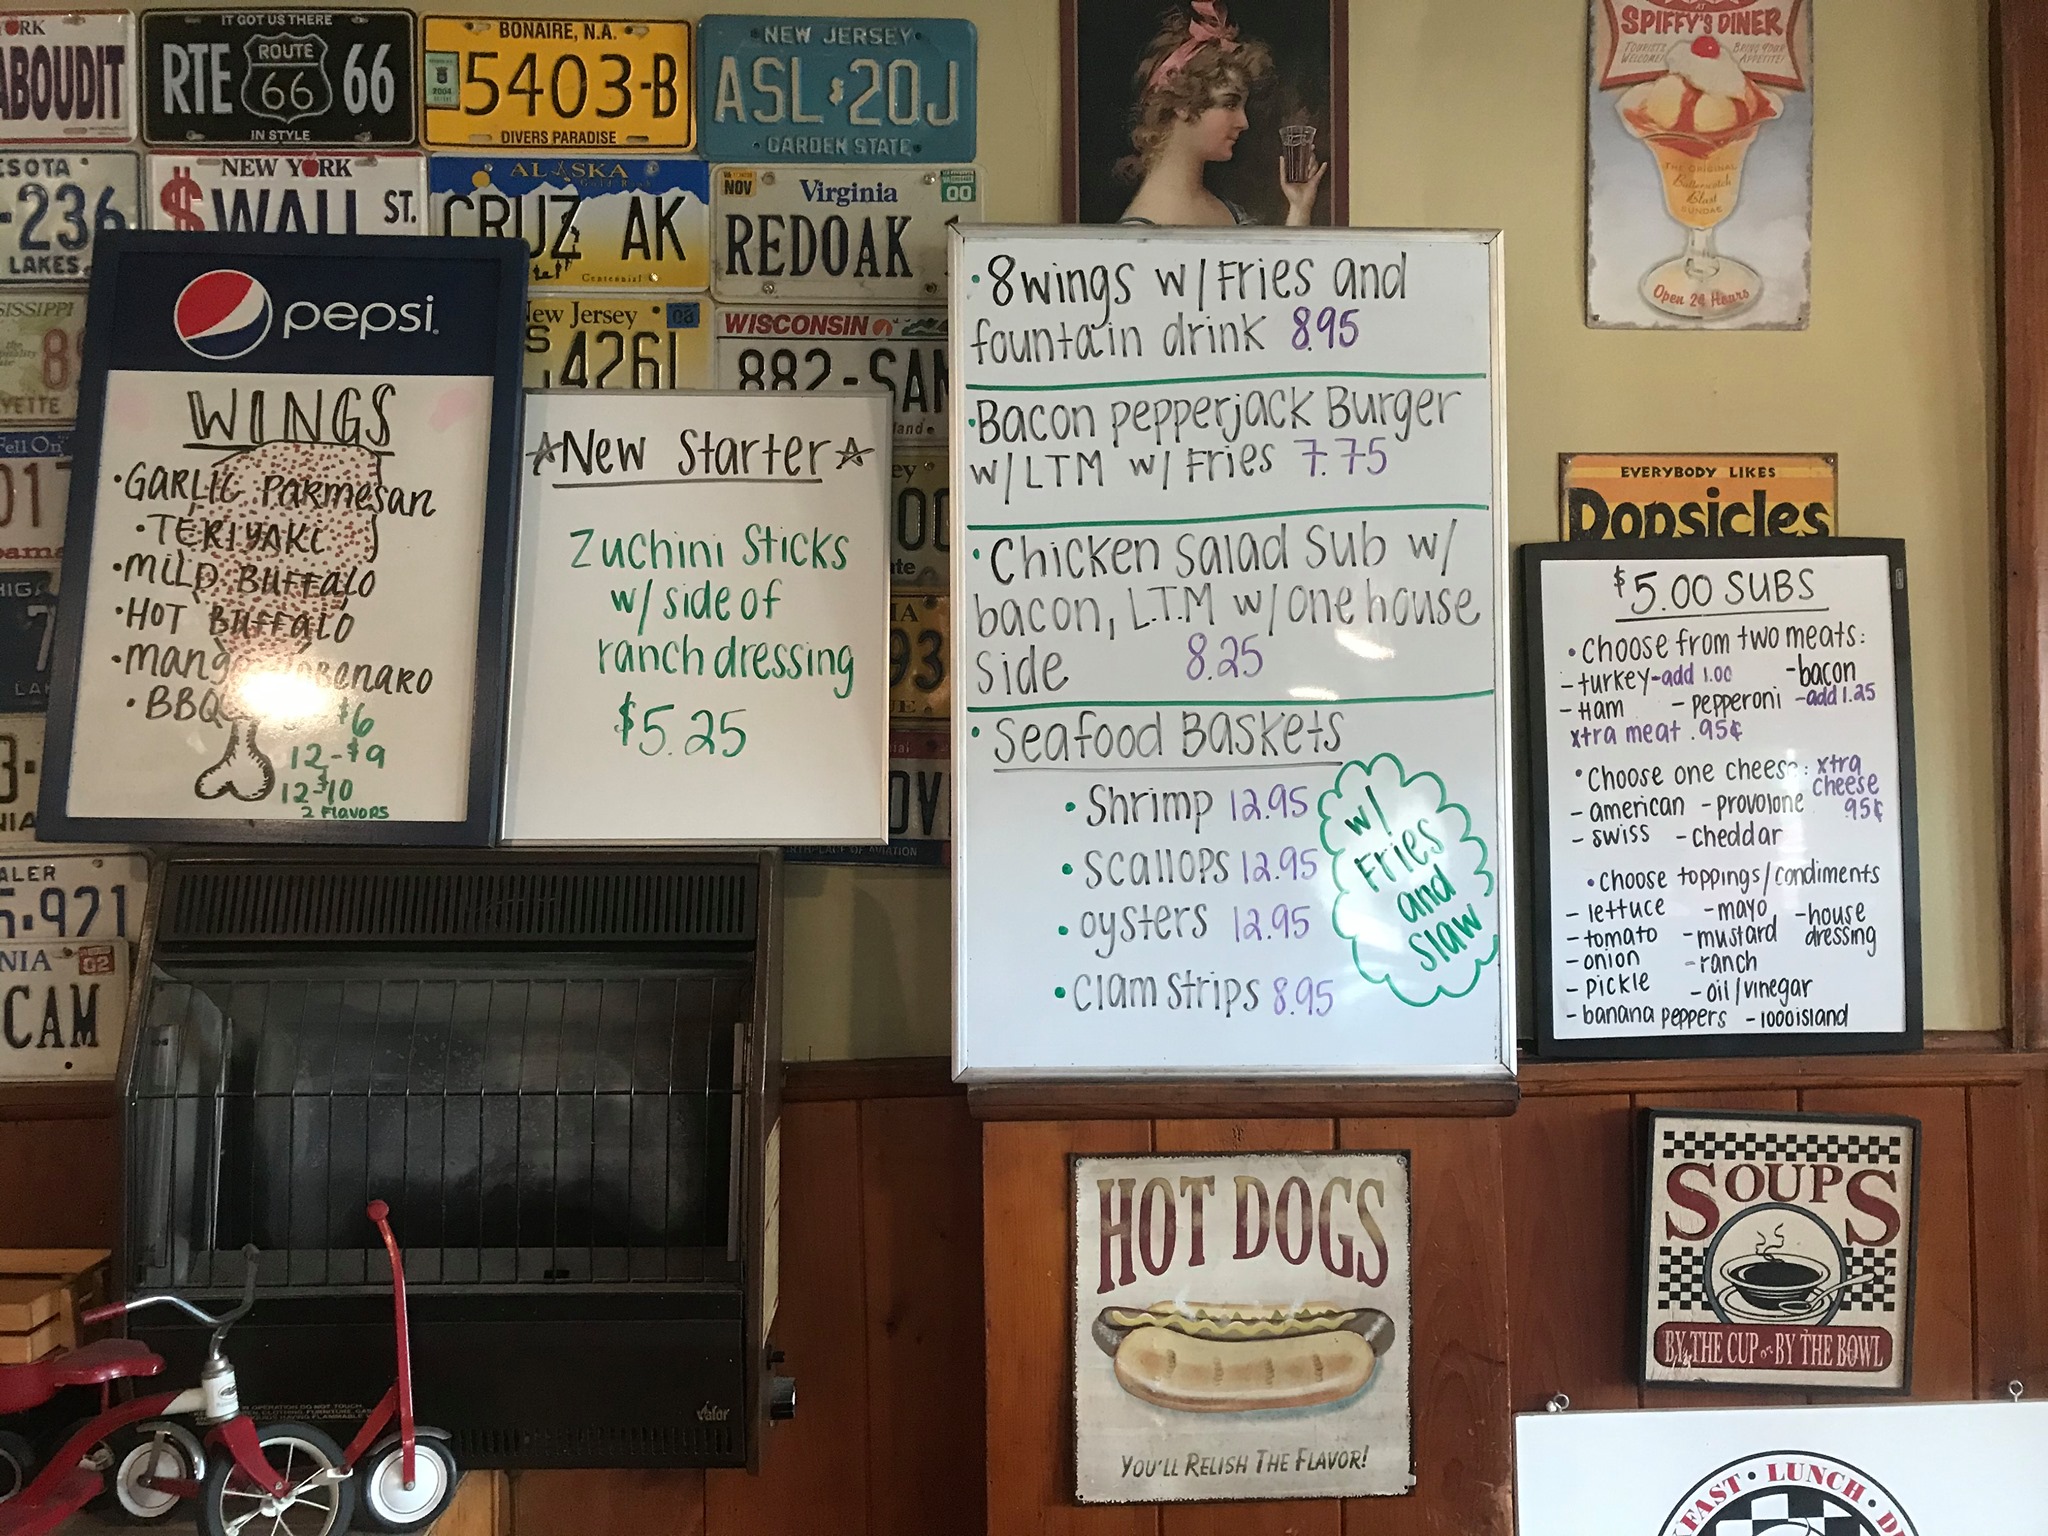 YORK
ABOUDIT
IT GOT US THERE
RTE ROUTE 66 66
IN STYLE
BONAIRE, N.A.
5403-B
DIVERS PARADISE
NEW JERSEY
ASL 20J
GARDEN STATE
-236
LAKES
NEW YORK
$WALL ST.
ALASKA
CRUZ AK
Centennial
NOV Virginia 00
REDOAK
New Jersey 03
426
WISCONSIN
882-SAN
Fell On
5-921
02
CAM
pepsi
WINGS
•GARLIC PARMESAN
•TERIYAKI
•MILD BUFFALO
•HOT BUFFALO
•BBQ
$6
12-$9
12-$10
2 FLAVORS
☆New Starter☆
Zuchini Sticks
w/ side of
ranch dressing
$5.25
•8wings w/Fries and
fountain drink 8.95
•Bacon pepperjack Burger
w/LTM w/ Fries 7.75
•Chicken salad Sub w/
bacon, L.T.M w/one house
side 8.25
•Seafood Baskets
•Shrimp 12.95
•scallops 12.95
•oysters 12.95
•Clam Strips 8.95
w/
Fries
and
slaw
SPIFFY'S DINER
THE ORIGINAL
Butterscotch
Blast
SUNDAE
Open 24 Hours
EVERYBODY LIKES
Popsicles
$5.00 SUBS
•Choose from two meats:
-turkey-add 1.00 -bacon
-Ham -pepperoni -add 1.25
xtra meat .95¢
•Choose one cheese: xtra
cheese
-american -provolone .95¢
-swiss -cheddar
•Choose toppings/condiments
-lettuce -mayo -house
-tomato -mustard dressing
-onion -ranch
-pickle -oil/vinegar
-banana peppers -1000island
HOT DOGS
YOU'LL RELISH THE FLAVOR!
SOUPS
BY THE CUP or BY THE BOWL
FAST • LUNCH •
Valor